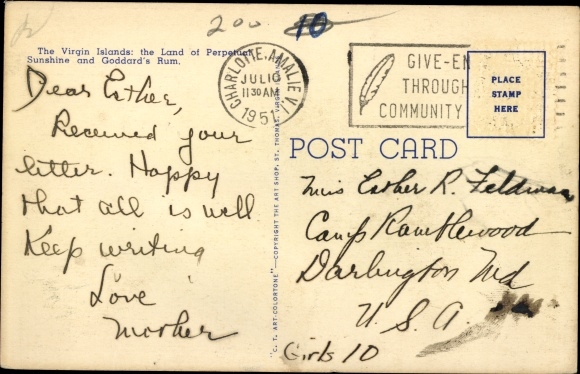 200 10
The Virgin Islands: the Land of Perpetual
Sunshine and Goddard's Rum.
CHARLOTTE AMALIE V.I.
JUL 10
11 30 AM
1951
GIVE-EN
THROUGH
COMMUNITY
PLACE
STAMP
HERE
POST CARD
Dear Esther,
Received your
letter. Happy
that all is well.
Keep writing
Love
Mother
"C. T. ART-COLORTONE"—COPYRIGHT THE ART SHOP, ST. THOMAS, VIRGIN
Miss Esther R. Feldman
Camp Ramblewood
Darlington Md
U. S. A.
Girls 10